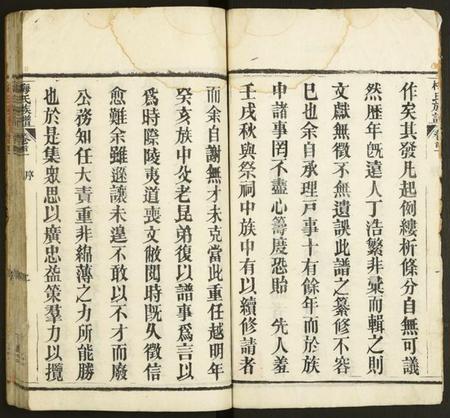 作矣其發凡起例縷析條分自無可議
然歷年既遠人丁浩繁非彙而輯之則
文獻無徵不無遺誤此譜之纂修不容
已也余自承理戸事十有餘年而於族
中諸事罔不盡心籌度恐貽 先人羞
壬戌秋與祭祠中族中有以續修請者
而余自謝無才未克當此重任越明年
癸亥族中父老昆弟復以譜事為言以
為時際陵夷道喪文敝閱時既久徵信
愈難余雖遜讓未遑不敢以不才而廢
公務知任大責重非綿薄之力所能勝
也於是集衆思以廣忠益策羣力以攬
梅氏族譜 卷首 序